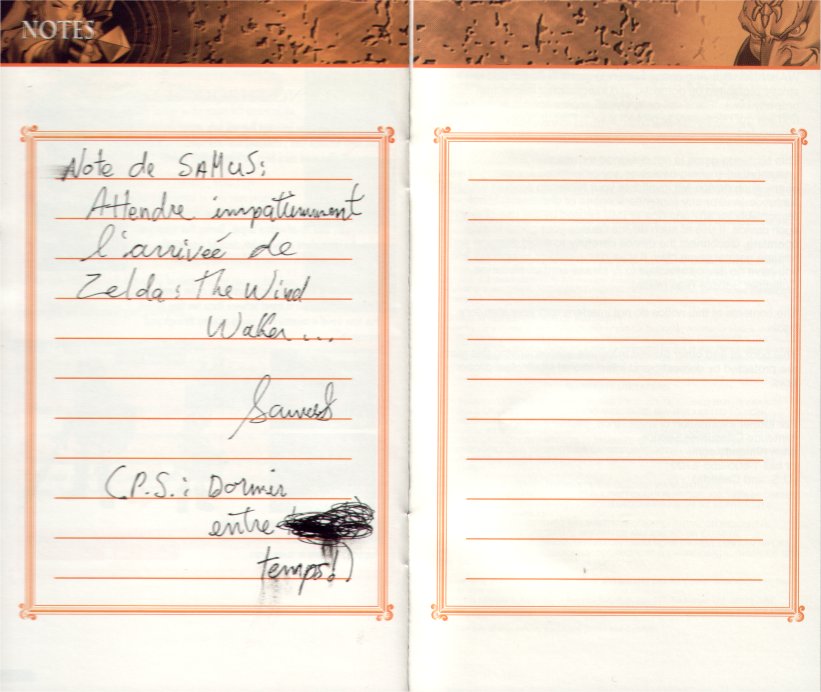 NOTES
Note de SAMUS:
Attendre impatiemment
l'arrivée de
Zelda: The Wind
Waker...
Samus
(P.S.: Dormir
entre
temps!)